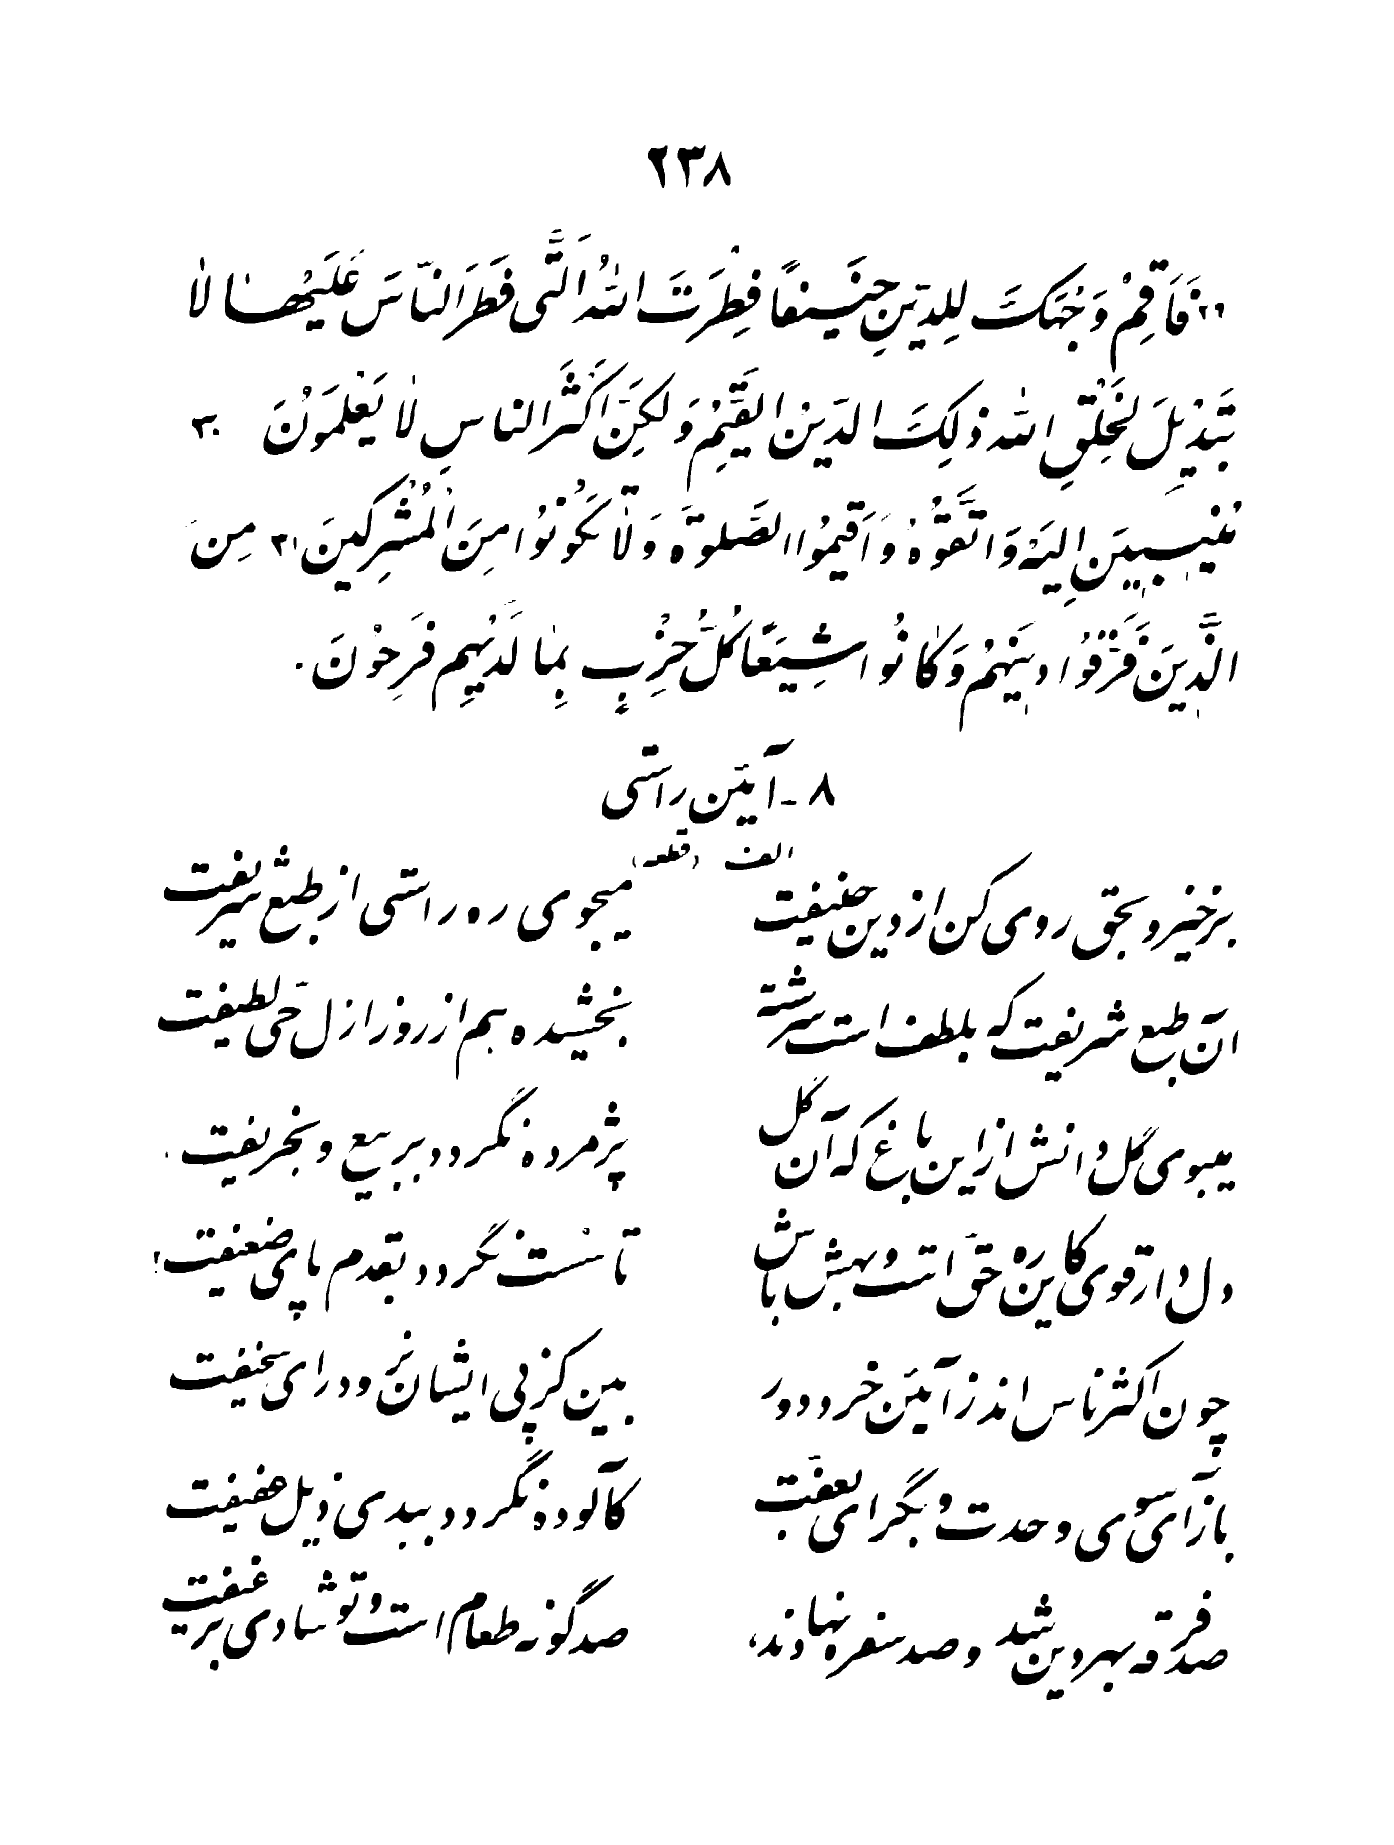 ۲۳۸
۲۹ فَاَقِمْ وَجْهَکَ لِلدّینِ حَنیفاً فِطْرَتَ اللّٰهِ الَّتی فَطَرَ النّاسَ عَلَیْهٰا لاٰ
تَبْدیْلَ لِخَلْقِ اللّٰه ذٰلِکَ الدّیْنُ الْقَیِّمُ وَلکِنَّ اَکْثَرَ الناسِ لاٰ یَعْلَمَوُنَ ۳۰
مُنیْبیٖنَ اِلَیْهِ وَ اتَّقُوهُ وَ اَقیمُوا الصَّلوةَ وَ لاٰ تَکُونُوا مِنَ الْمُشْرِکینَ ۳۱ مِنَ
الَّذینَ فَرَّقُوا دینَهُمْ وَ کانُوا شِیَعًا کُلُّ حِزْبٍ بِمٰا لَدَیْهِم فَرِحْوُنَ .
۸ - آئین راستی
الف (قطعه)
برخیز و بحق روی کن از دین حنیفت میجوی ره راستی از طبع شریفت
آن طبع شریفت که بلطف است سرشته بخشیده بهم از روز ازل حَی لطیفت
میبوی گل دانش از این باغ که آن گل پژمرده نگردد بربیع و بخریفت .
دل دار قوی کاین ره حقّ است و بهش باش تا سُست نگردد بقدم پای ضعیفت
چون اکثر ناس اند ز آئین خرد دور بین کز پی ایشان نرود رای سخیفت
باز آی سوی وحدت و بگرای بعفّت کآلوده نگردد ببدی ذیل عفیفت
صد فرقه بهر دین شد و صد سفره نهادند، صد گونه طعام است و تو شادی برغیفت